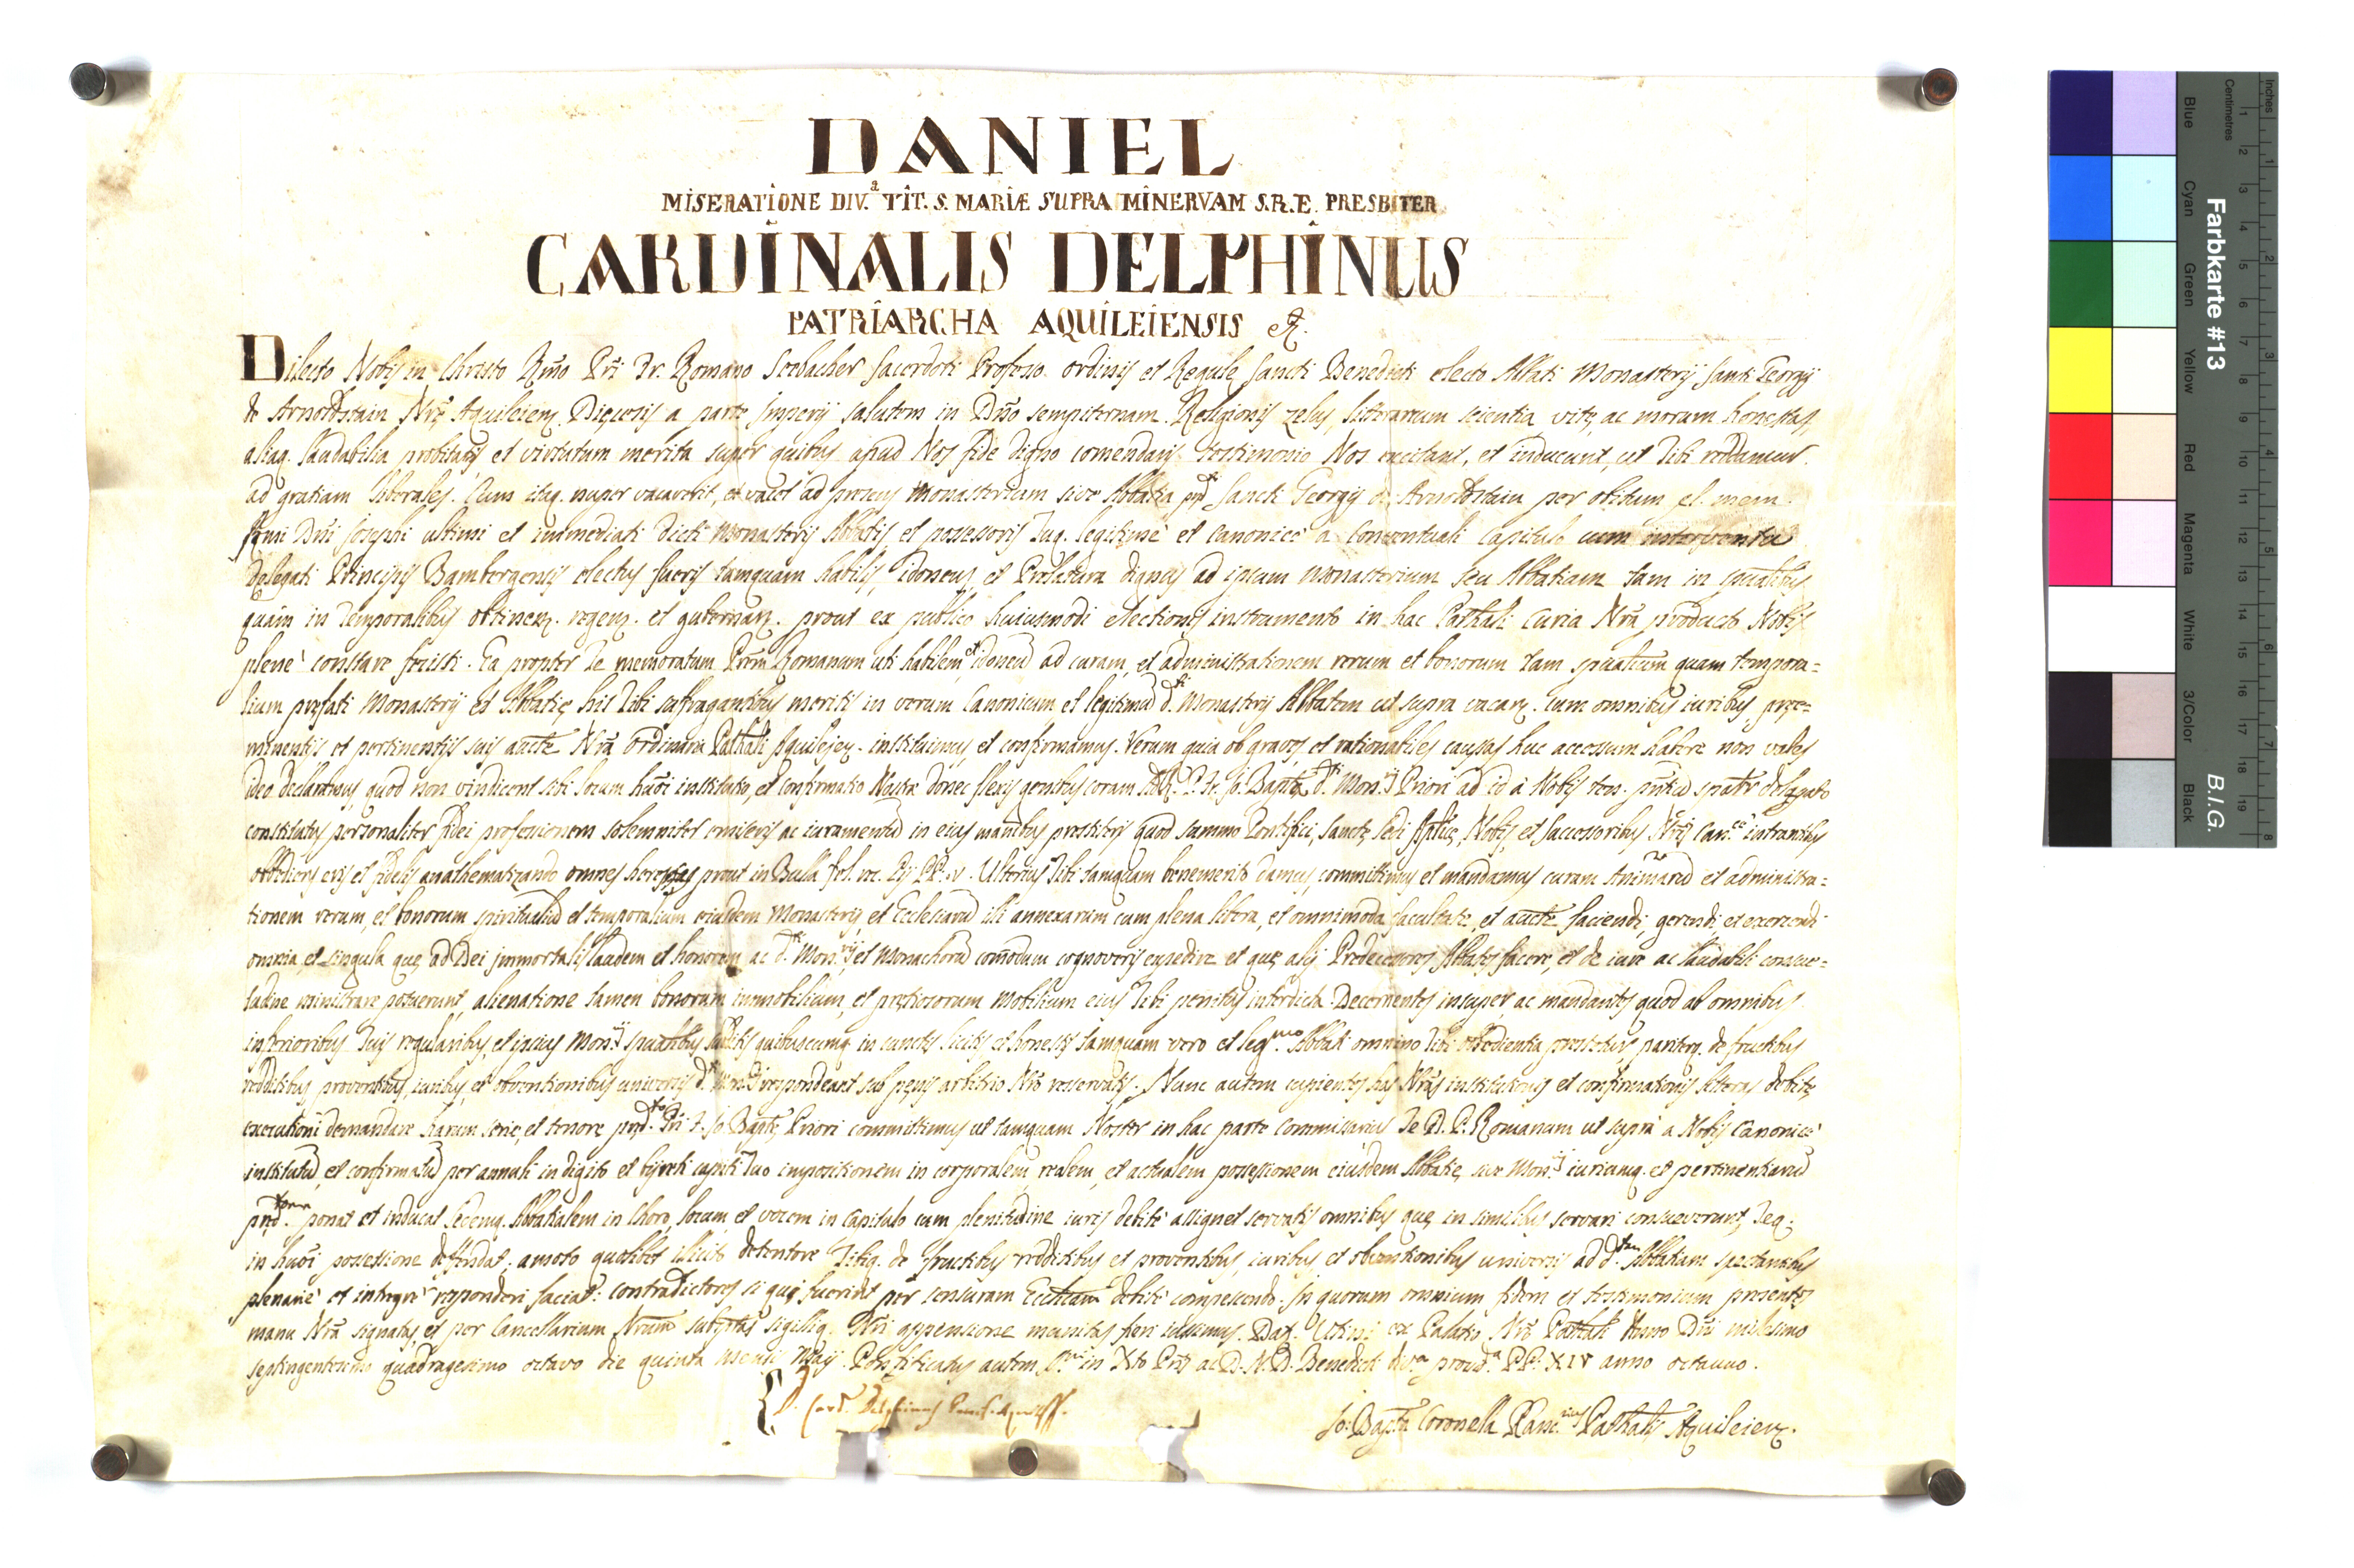 DANIEL
MISERATIONE DIV.a TIT. S. MARIÆ SUPRA MINERVAM S.R.E. PRESBITER
CARDINALIS DELPHINUS
PATRIARCHA AQUILEIENSIS &.
Dilecto Nobis in Christo Rño Pri Fr. Romano Seebacher Sacerdoti Professo ordinis et Regule Sancti Benedicti electo Abbati Monasterij Santi Georgij
de Arnoldstain Nrę Aquileien. Dięcesis a parte Imperij salutem in Dño sempiternam. Religionis zelus, litterarum scientia, vitę, ac morum honestas,
aliaq. laudabilia probitatis et virtutum merita super quibus apud Nos fide digno comendaris testimonio Nos excitant, et inducunt, ut Tibi reddamur
ad gratiam liberales. Cum itaq. nuper vacaverit, et vacet ad presens Monasterium sive Abbatia pred. Sancti Georgij de Arnoldstain per obitum el. mem.
Dñi Josephi ultimi et immediati dicti Monasterij Abbatis et possessoris Tuq. legitime et canonice a Conventuali Capitulo cum interventu
Delegati Principis Bambergensis electus fueris tamquam habilis, idoneus, et Prelatura dignus ad ipsum Monasterium seu Abbatiam tam in spualibus
quàm in Temporalibus obtinen. regen. et gubernan. prout ex publico huiusmodi electionis instrumento in hac Pathali Curia Nrã producto Nobis
plenè constare fecisti. Ea propter Te memoratum Prem Romanum uti habilem, et idoneũ ad curam, et administrationem rerum et bonorum tam spualium quam tempora=
lium pręfati Monasterij et Abbatię his Tibi suffragantibus meritis in verum Canonicum, et legitimũ d.ti Monasterij Abbatem ut supra vacan. cum omnibus iuribus, pręe=
minentijs, et pertinentijs suis aucte Nrã ordinaria Pathali Aquilejen. instituimus, et confirmamus. Verum quia ob graves, et rationabiles causas huc accessum habere non vales
ideo declaramus, quod non vindicent sibi locum huõi institutio, et confirmatio Nostra donec flexis genibus coram P. Fr. Jo. Bapta d.ti Mon.ij Priori ad id à Nobis delegato
constitutus personaliter fidei professionem solemniter emiseris ac iuramentũ in eius manibus prestiteris quod summo Pontifici, Sanctę Sedi Aplicę, Nobis, et Successoribus Nris Can.ce intrantibus
obediens eris et fidelis anathematizando omnes hereses prout in Bulla fel. rec. Pij PP. V. Ulterius Tibi tamquam benemerito damus, committimus et mandamus curam Animarũ et administra=
tionem rerum, et bonorum spiritualiũ et temporalium eiusdem Monasterij, et Ecclesiarũ illi annexarum cum plena libera, et omnimoda facultate, et aucte faciendi, gerendi, et exercendi
omnia, et singula quę ad Dei immortalis laudem et honorem ac d.ti Mon.rij et Monachorũ comodum cognoveris expedire et quę alij Predecessores Abbates facere, et de iure ac laudabili consue=
tudine ministrare potuerunt, alienatione tamen bonorum immobilium, et pretiosorum Mobilium eius Tibi penitus interdicta. Decernentes insuper, ac mandantes quod ab omnibus
inferioribus Tuis regularibus, et ipsius Mon.ij spualibus subditis quibuscumq. in cunctis licitis et honestis tamquam vero et leg.mo Abbati omnino Tibi obedientia prestetur, pariterq. de fructibus
redditibus proventibus, iuribus, et obventionibus universis d.ti respondeant sub pęnis arbitrio Nrõ reservatis. Nunc autem cupientes has Nrãs institutionis et confirmationis litteras debitę
executioni demandare harum serie, et tenore pred.to Pri F. Jo. Baptę Priori committimus ut tamquam Noster in hac parte Commissarius Te D. P. Romanum ut suprà a Nobis Canonicè
institutũ, et confirmatũ per annuli in digito et byreti capiti Tuo impositionem in corporalem, realem, et actualem possessionem eiusdem Abbatię, sive Mon.ij iuriumq. et pertinentiarũ
pred. ponat et inducat Sedemq. Abbatialem in Choro, locum et vocem in Capitulo cum plenitudine iuris debitè assignet servatis omnibus quę in similibus servari consueverunt, Teq.
in huõi possessione deffendat, amoto quolibet illicito detentore Tibiq. de fructibus redditibus et proventibus, iuribus, et obventionibus universis ad d.tam Abbatiam spectantibus
plenariè et integrè responderi faciat: contradictores si qui fuerint per censuram Ecclicam debitè compescendo. In quorum omnium fidem et testimonium presentes
manu Nrã signatas, et per Cancellarium Nrum subptas sigilliq. Nri appensione munitas fieri iussimus. Dat. Utini ex Palatio Nrõ Pathali Anno Dñi milesimo
septingentesimo quadragesimo octavo die quinta mensis Maij. Pontificatus autem S.mi in Xto Pris ac D. N. D. Benedicti div.a provid.a PP. XIV anno octavo.
D. Card. Delphinus
Jo: Bapta Coronella Canc.rius Pathalis Aquileien.